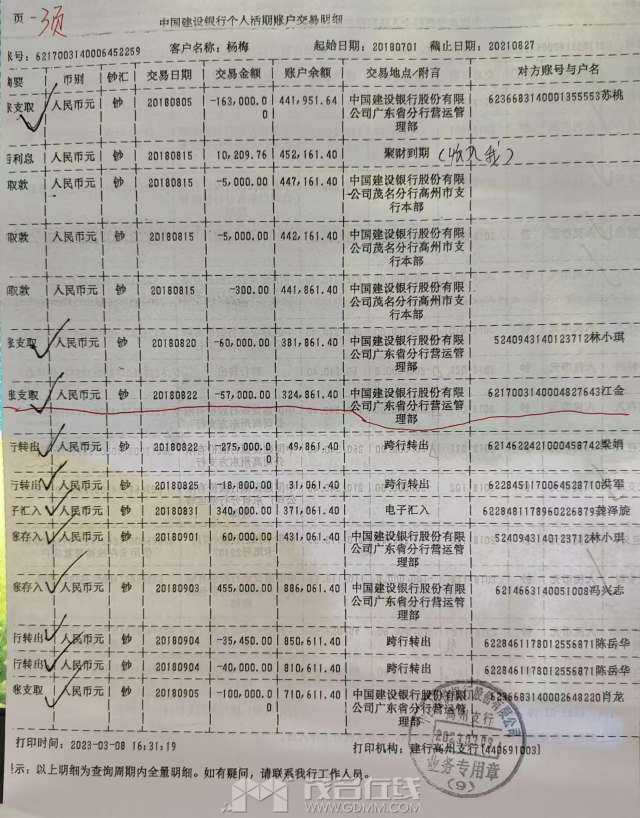 页-3页
中国建设银行个人活期账户交易明细
账号: 6217003140006452259 客户名称: 杨梅 起始日期: 20180701 截止日期: 20210827
摘要 币别 钞汇 交易日期 交易金额 账户余额 交易地点/附言 对方账号与户名
账支取 人民币元 钞 20180805 -163,000.00 441,951.64 中国建设银行股份有限公司广东省分行营运管理部 6236683140001355553苏桃
利息 人民币元 钞 20180815 10,209.76 452,161.40 聚财到期
取款 人民币元 钞 20180815 -5,000.00 447,161.40 中国建设银行股份有限公司茂名分行高州市支行本部
取款 人民币元 钞 20180815 -5,000.00 442,161.40 中国建设银行股份有限公司茂名分行高州市支行本部
取款 人民币元 钞 20180815 -300.00 441,861.40 中国建设银行股份有限公司茂名分行高州市支行本部
账支取 人民币元 钞 20180820 -60,000.00 381,861.40 中国建设银行股份有限公司广东省分行营运管理部 5240943140123712林小琪
账支取 人民币元 钞 20180822 -57,000.00 324,861.40 中国建设银行股份有限公司广东省分行营运管理部 6217003140004827643江金
行转出 人民币元 钞 20180822 -275,000.00 49,861.40 跨行转出 6214622421000458742梁娟
行转出 人民币元 钞 20180825 -18,800.00 31,061.40 跨行转出 6228451170064528710洪军
子汇入 人民币元 钞 20180831 340,000.00 371,061.40 电子汇入 6228481178960226879魏泽旋
账存入 人民币元 钞 20180901 60,000.00 431,061.40 中国建设银行股份有限公司广东省分行营运管理部 5240943140123712林小琪
账存入 人民币元 钞 20180903 455,000.00 886,061.40 中国建设银行股份有限公司广东省分行营运管理部 6214663140051008冯兴志
行转出 人民币元 钞 20180904 -35,450.00 850,611.40 跨行转出 6228461178012556871陈岳华
行转出 人民币元 钞 20180904 -40,000.00 810,611.40 跨行转出 6228461178012556871陈岳华
账支取 人民币元 钞 20180905 -100,000.00 710,611.40 中国建设银行股份有限公司广东省分行营运管理部 6236683140002648220肖龙
高州支行
业务专用章
(9)
打印时间: 2023-03-08 16:31:19 打印机构: 建行高州支行[440691003]
提示: 以上明细为查询周期内全量明细。如有疑问, 请联系我行工作人员。
茂名在线
WWW.GDMM.COM